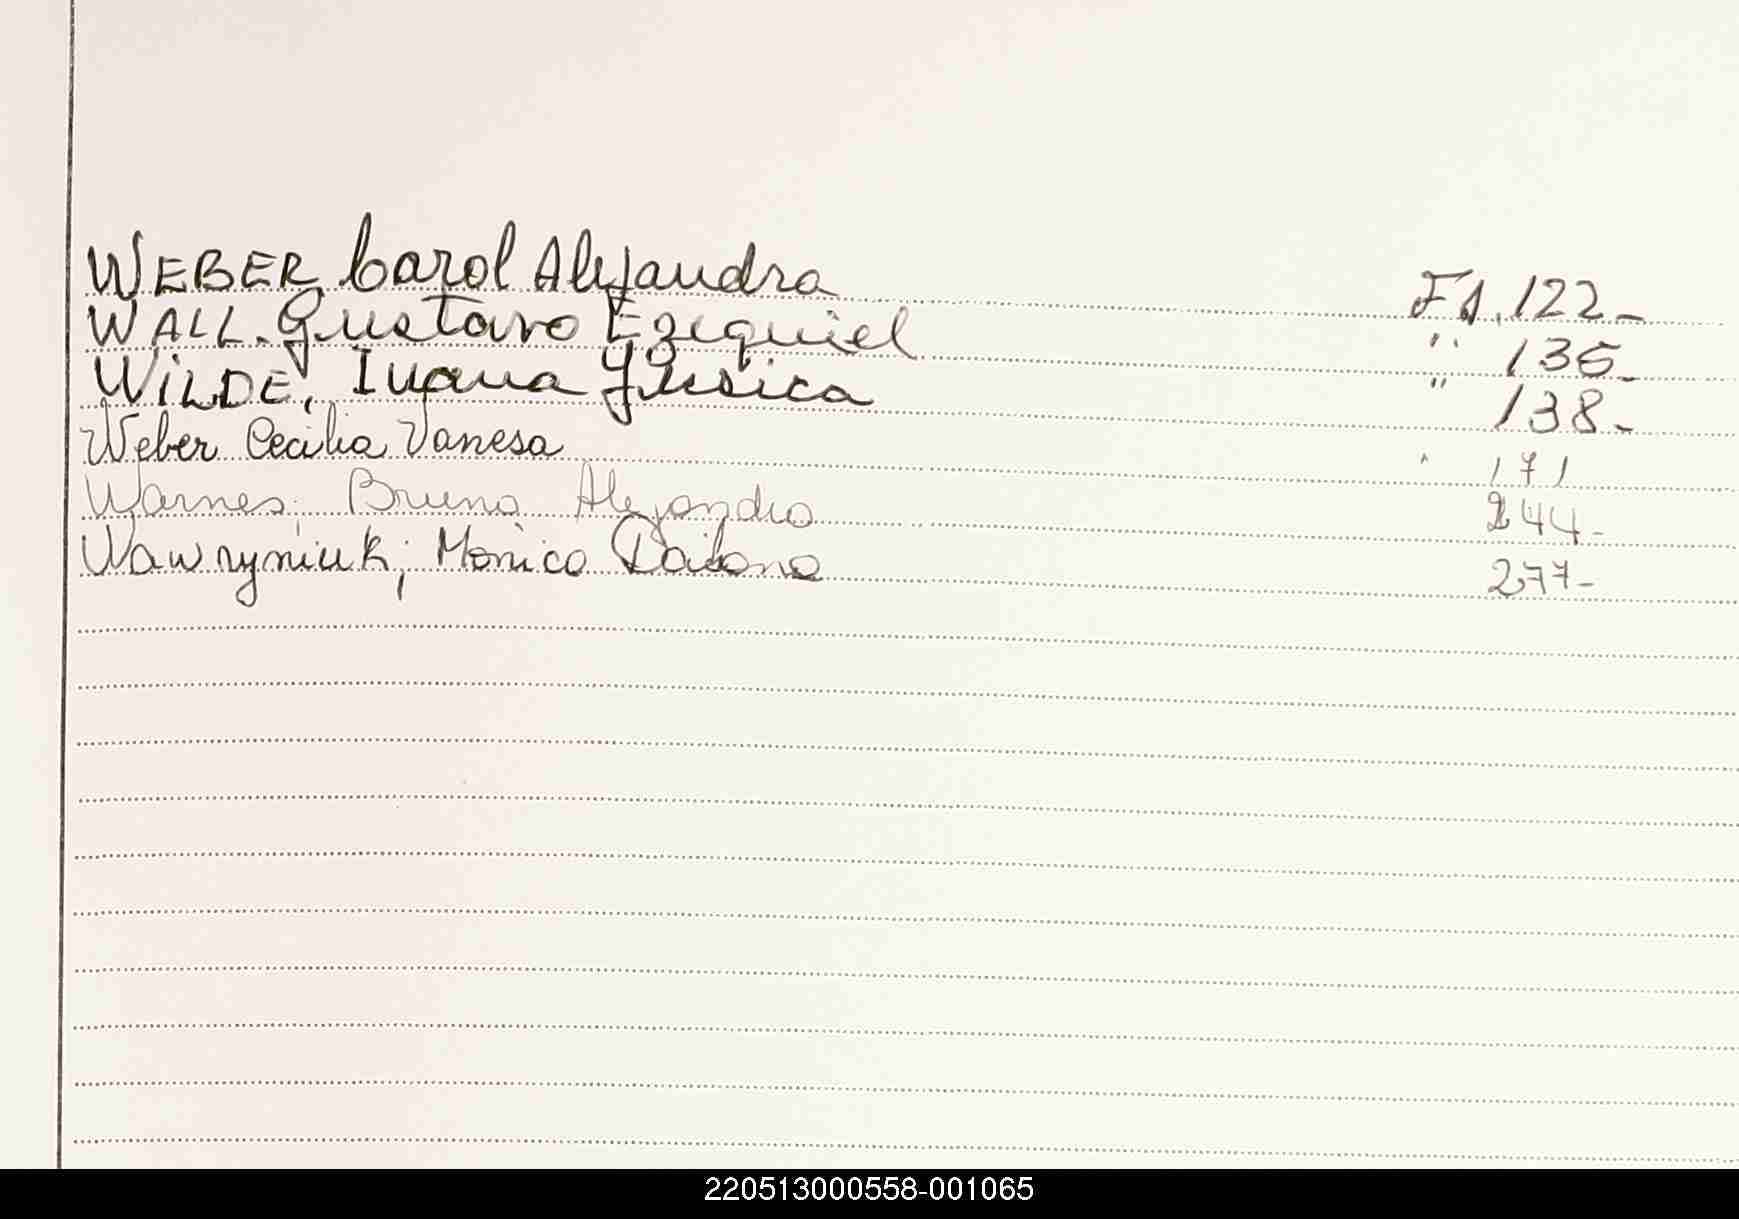 WEBER, Carol Alejandra F1.122-
WALL. Gustavo Ezequiel " 136-
WILDE, Ivana Yessica " 138-
Weber Cecilia Vanesa " 171
Warnes; Bruno Alejandro 244-
Wawryniuk; Monica Daiana 277-
220513000558-001065